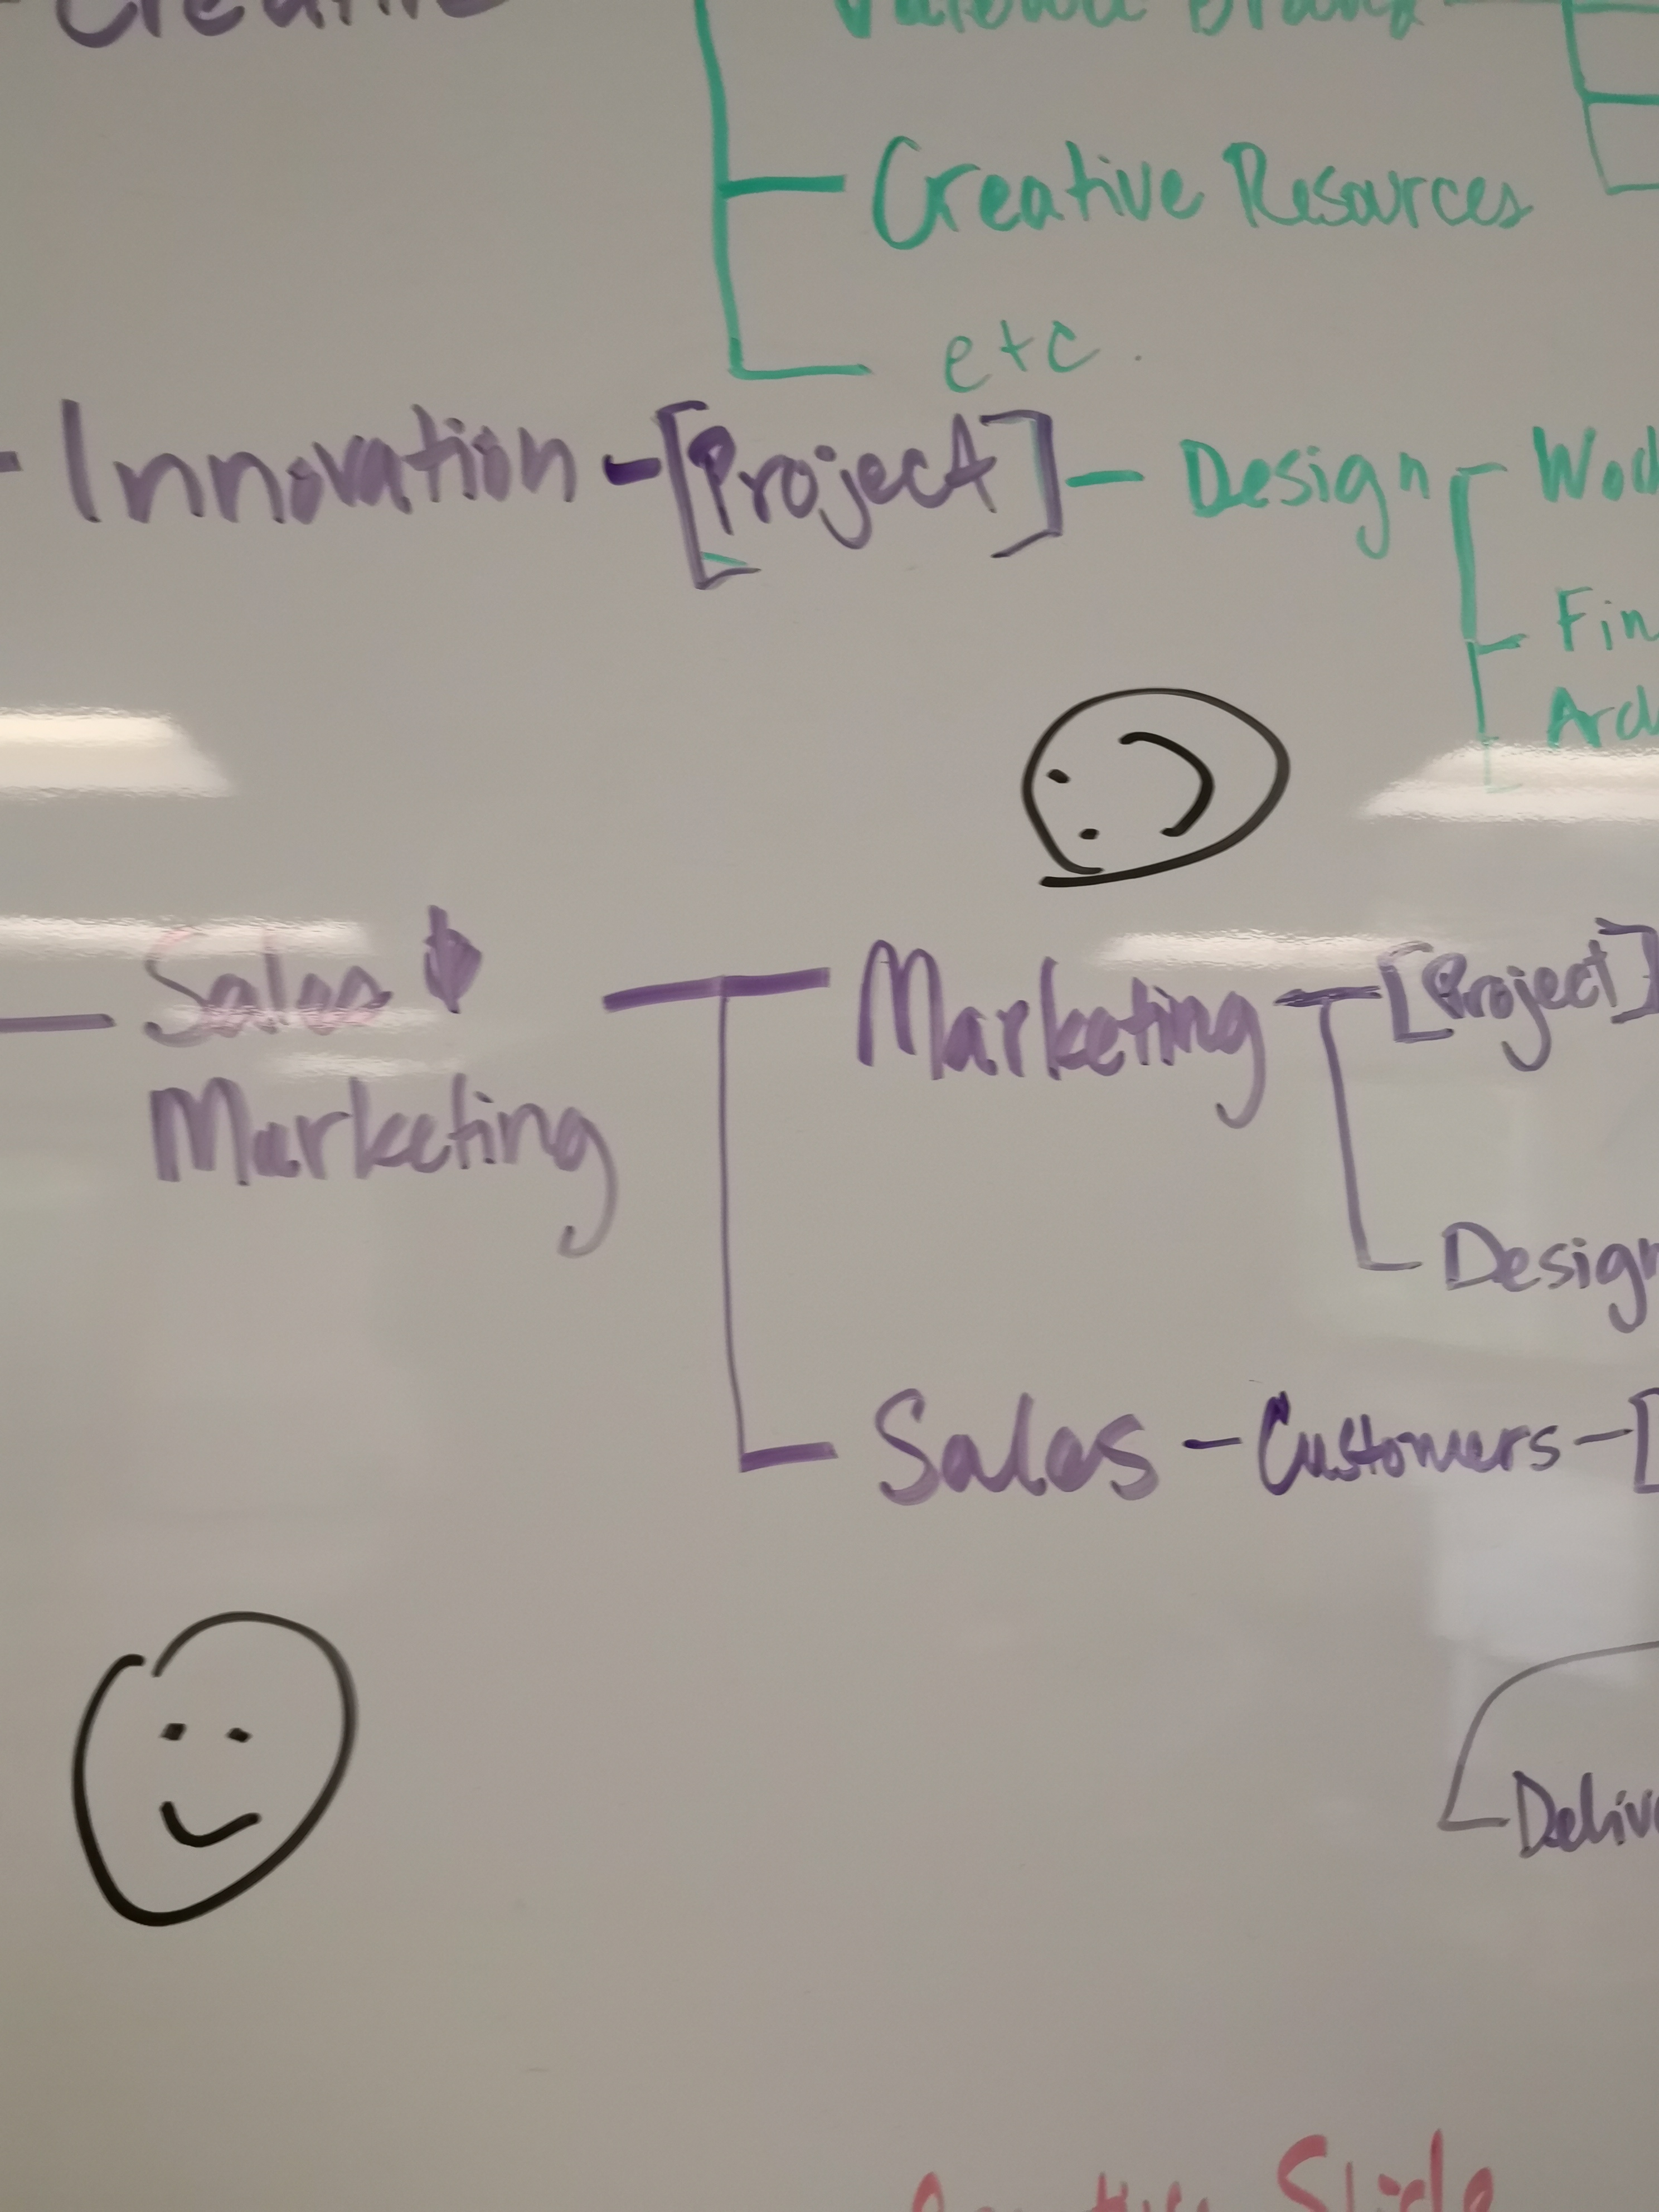 Creative
Creative Resources
etc.
Innovation - [Project] - Design
Sales &
Marketing
Marketing
[Project]
Design
Sales - Customers - [